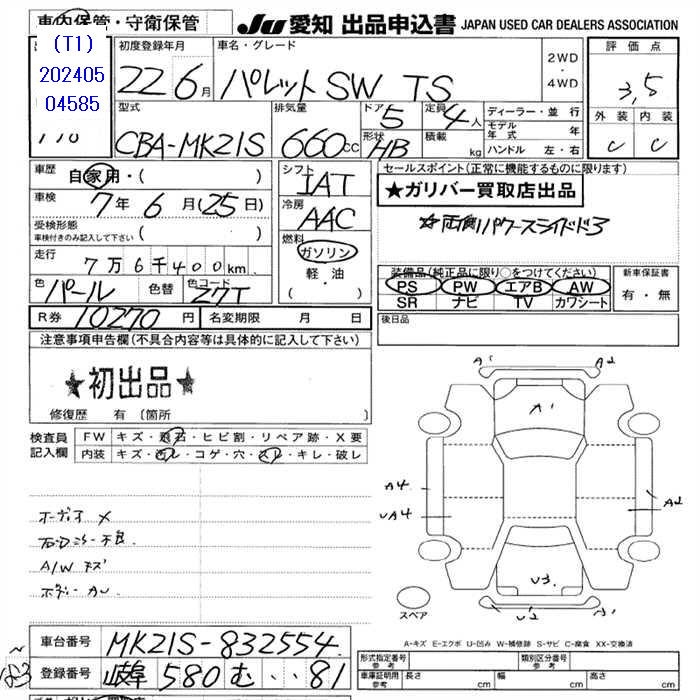 車内保管・守衛保管
JU 愛知 出品申込書 JAPAN USED CAR DEALERS ASSOCIATION
(T1)
202405
04585
初度登録年月 車名・グレード
22 6月 パレットSW TS
2WD
・
4WD
評価点
3,5
外装 内装
C C
型式 排気量 ドア 定員
CBA-MK21S 660cc 5 4人
形状 積載
HB kg
ディーラー・並行
モデル年式 年
ハンドル 左・右
車歴 自家用・( )
車検 7年 6月(25日)
受検形態
車検付きのみ記入して下さい ( )
走行 7万6千400km
色 パール 色替 色コード Z7T
シフト
IAT
冷房
AAC
燃料
ガソリン
・
軽・油
( ・ )
セールスポイント(正常に機能するものに限ります)
★ガリバー買取店出品
両側パワースライドドア
装備品(純正品に限り○をつけてください) 新車保証書
PS PW エアB AW 有・無
SR ナビ TV カワシート
R券 10270円 名変期限 月 日
後日品
注意事項申告欄(不具合内容等は具体的に記入して下さい)
★初出品★
修復歴 有〔箇所 〕
検査員記入欄 FW キズ・飛石・ヒビ割・リペア跡・X要
内装 キズ・汚レ・コゲ・穴・スレ・キレ・破レ
オーディオ X
A/W キズ
ボディー AU
A1 A2
A1
A4
UA4
A2
U3
U2 A1
スペア
A-キズ E-エクボ U-凹み W-補修跡 S-サビ C-腐食 XX-交換済
車台番号 MK21S-832554
登録番号 岐阜 580 む ・・81
形式指定番号 参考 類別区分番号 参考
車庫証明用 参考 長さ cm 幅 cm 高さ cm